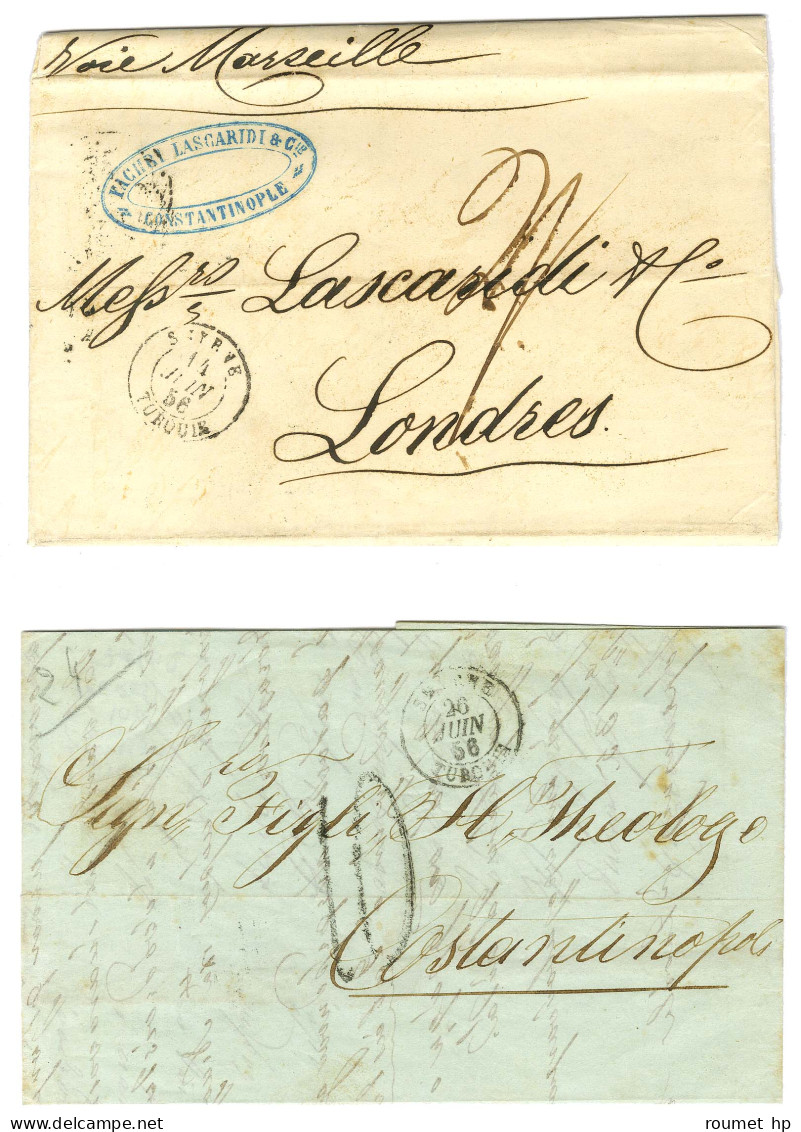 Voie Marseille
LASCARIDI & Cie
CONSTANTINOPLE
Messrs Lascaridi & Co.
SMYRNE
14
JUIN
56
TURQUIE
Londres.
24
SMYRNE
26
JUIN
56
TURQUIE
Sign. Figli, H. Theologo
10
Costantinopoli
roumet hp
© www.delcampe.net